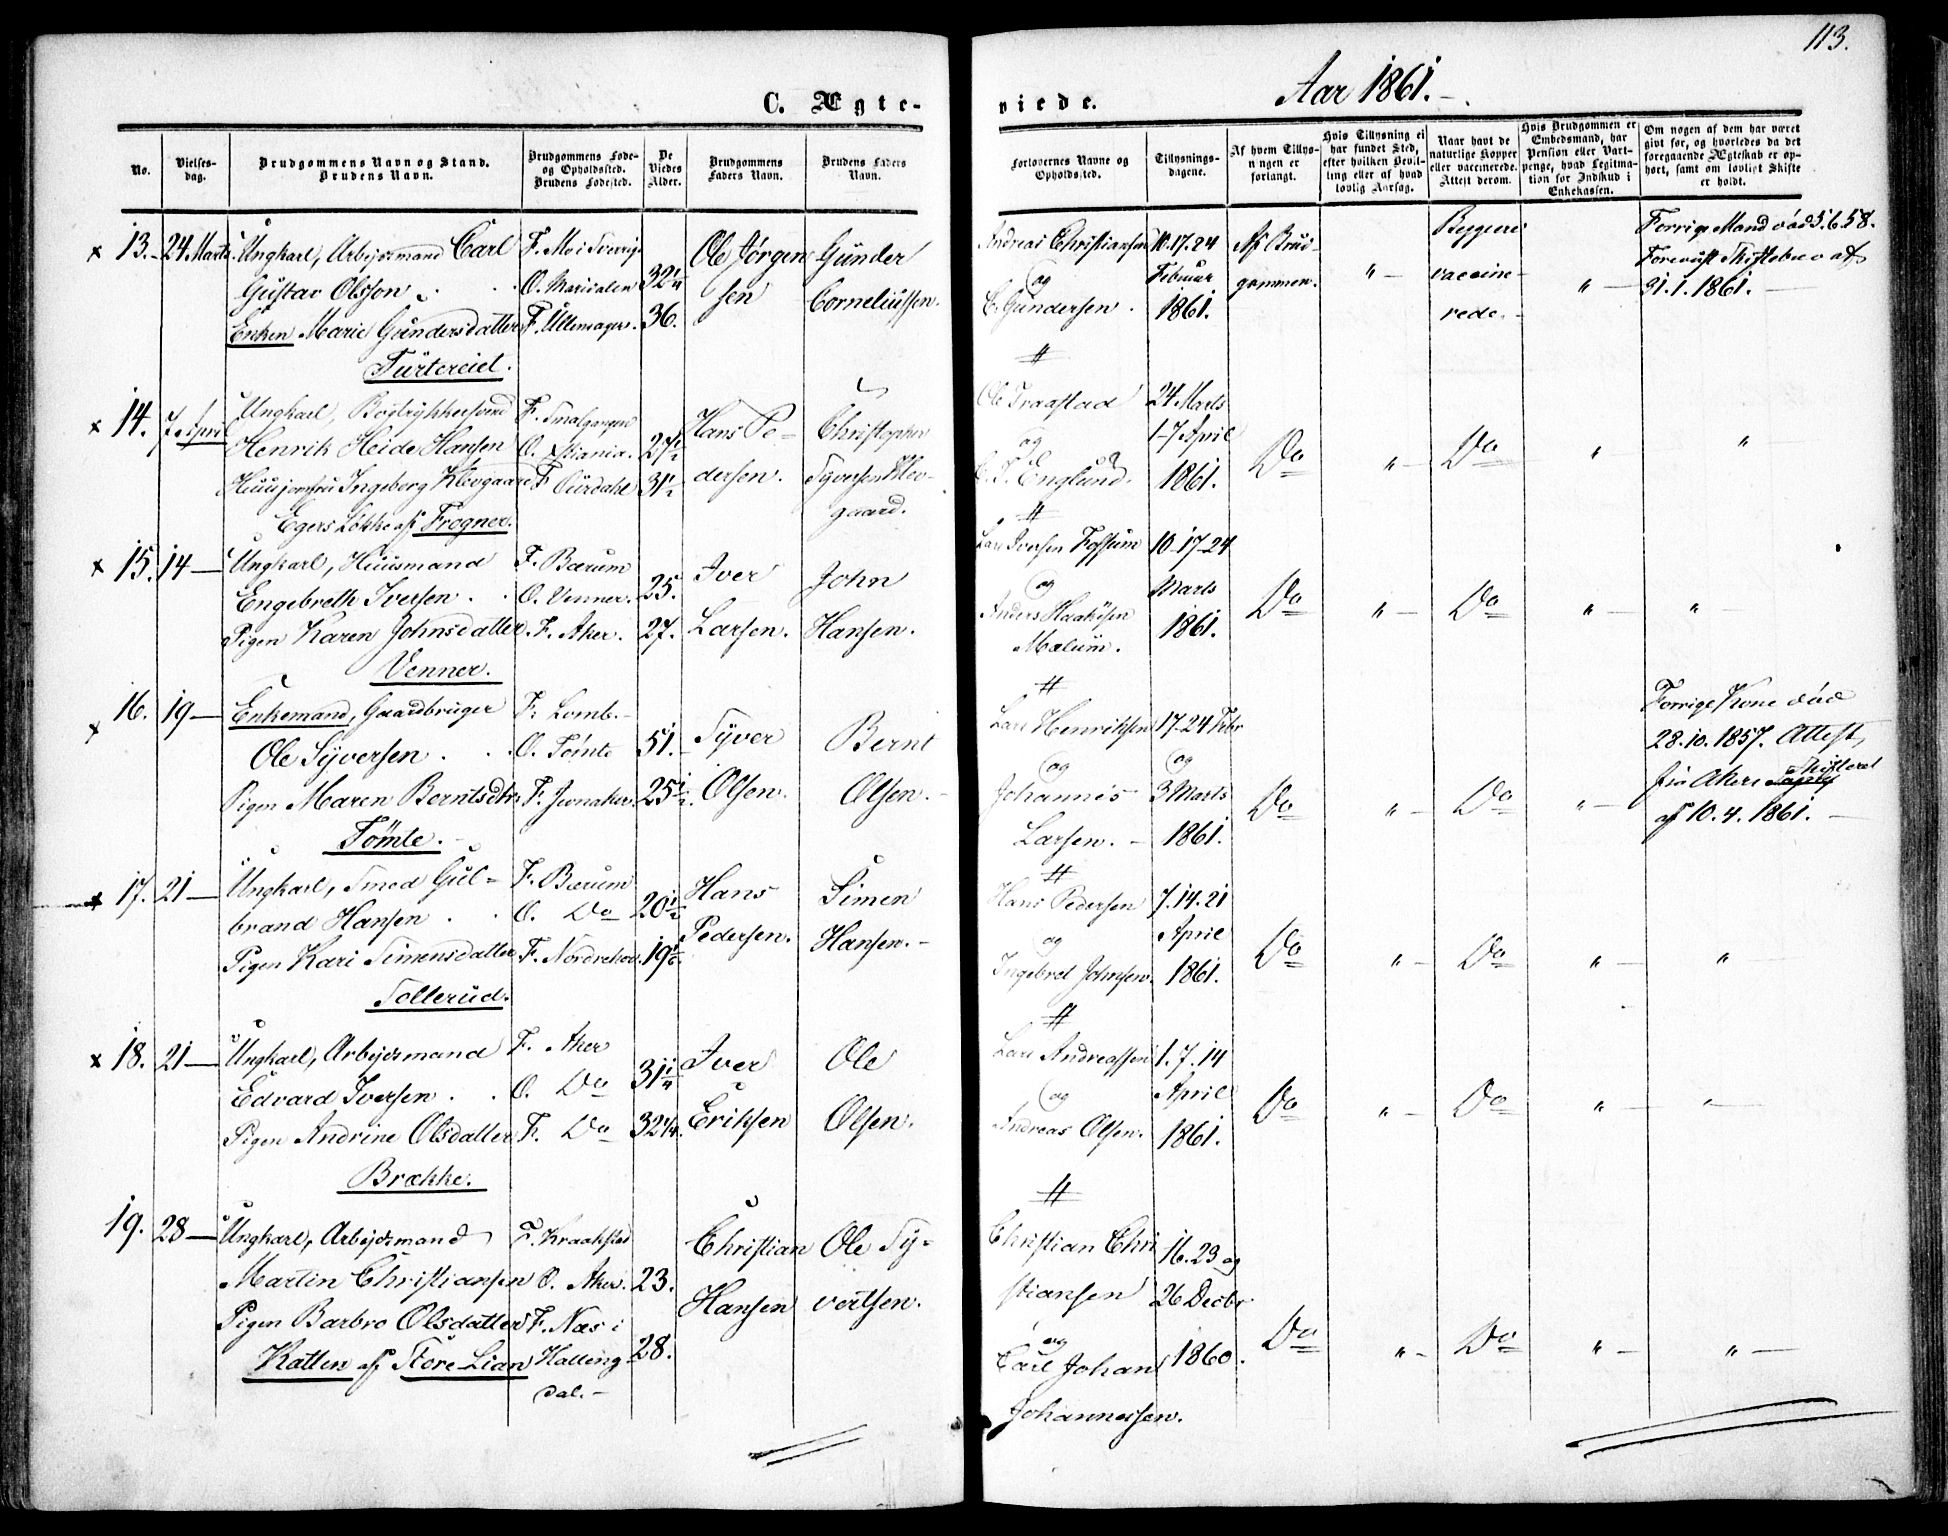 113.
C. Ægteviede.
Aar 1861.
No.
Vielsesdag.
Brudgommens Navn og Stand.
Brudens Navn.
Brudgommens Fødeog Opholdssted.
Brudens Fødested.
De Viedes Alder.
Brudgommens Faders Navn.
Brudens Faders Navn.
Forlovernes Navne og Opholdssted.
Tillysningsdagene.
Af hvem Tillysningen er forlangt.
Hvis Tillysning ei har fundet Sted, efter hvilken Bevilling eller af hvad lovlig Aarsag.
Naar havt de naturlige Kopper eller vaccinerede. Attest derom.
Hvis Brudgommen er Embedsmand, har Pension eller Vartpenge, hvad Legitimation for Indskud i Enkekassen.
Om nogen af dem har været gift før, og hvorledes da det foregaaende Ægteskab er ophørt, samt om lovligt Skifte er holdt.
x 13. 24 Marts. Ungkarl, Arbejdsmand Carl
Gustav Olsson
Enken Marie Gundersdatter
Furtereiet.
F. Mo i Sverige
O. Maridalen
F. Ullensager.
32 1/4
36.
Ole Jørgensen
Gunder Corneliussen.
Andreas Christiansen
og
C. Gundersen.
10. 17. 24
Februar
1861.
Af Brudgommen.
" —
Begge vaccinerede.
" —
Forrige Mand død 5.6.58.
Forevist Skiftebrev af
31.1.1861.
x 14. 7 April Ungkarl, Bogtrykkersvend
Henrik Heide Hansen
Huusjomfru Ingeborg Klevgaard
Egers Løkke af Frogner.
F. Smalgangen
O. Xtiania.
F. Ourdahl
27 1/2
31 1/2
Hans Pedersen.
Christopher
Syversen Klevgaard.
Ole Traastad
og
Englund.
24 Marts
1-7 April
1861.
Do " — Do " — "
x 15. 14 — Ungkarl, Huusmand
Engebreth Iversen.
Pigen Karen Johnsdatter
Venner.
F. Bærum
O. Venner.
F. Aker.
25.
27.
Iver Larsen.
John Hansen.
Lars Iversen Fossum
og
Anders Haakisen
Mælum.
10-17-24
Marts
1861.
Do " — Do " — "
x 16. 19 — Enkemand, Gaardbruger
Ole Syversen
Pigen Maren Berntsdtr
Tømte.
F. Lomb.
O. Tømte
F. Jevnaker.
51.
25 1/2.
Syver Olsen.
Bernt Olsen.
Lars Henriksen
og
Johannes
Larsen.
17-24 Febr
og
3 Marts
1861.
Do " — Do " —
Forrige Kone død
28.10.1857. Attest
fra Akers Skifteret
af 10.4.1861.
x 17. 21 — Ungkarl, Smed Gulbrand Hansen
Pigen Kari Simensdatter
Tollerud.
F. Bærum
O. Do
F. Nordrehov.
20 1/2
19 1/6.
Hans Pedersen.
Simen Hansen.
Hans Pedersen
og
Ingebret Johnsen.
7. 14. 21
April
1861.
Do " — Do " — "
x 18. 21 — Ungkarl, Arbejdsmand
Edvard Iversen
Pigen Andrine Olsdatter
Brække.
F. Aker
O. Do
F. Do
31 1/4
32 1/4.
Iver Eriksen
Ole Olsen.
Lars Andreassen
og
Andreas Olsen.
1. 7. 14
April
1861.
Do " — Do " —
19. 28 — Ungkarl, Arbejdsmand
Martin Christiansen
Pigen Barbro Olsdatter
Katten af Store Lian
F. Kraakstad
O. Aker.
F. Næs i
Hallingdal.
23.
28.
Christian Hansen
Ole Syvertsen.
Christian Christiansen
og
Carl Johan
Johannessen.
16. 23 og
26 Decbr
1860.
Do " — Do " — " —